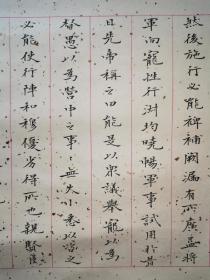 然後施行必能裨補闕漏有所廣益將
軍向寵性行淑均曉暢軍事試用於昔
日先帝稱之曰能是以衆議舉寵以爲
督愚以爲營中之事事無大小悉以咨之
必能使行陣和穆優劣得所也親賢臣